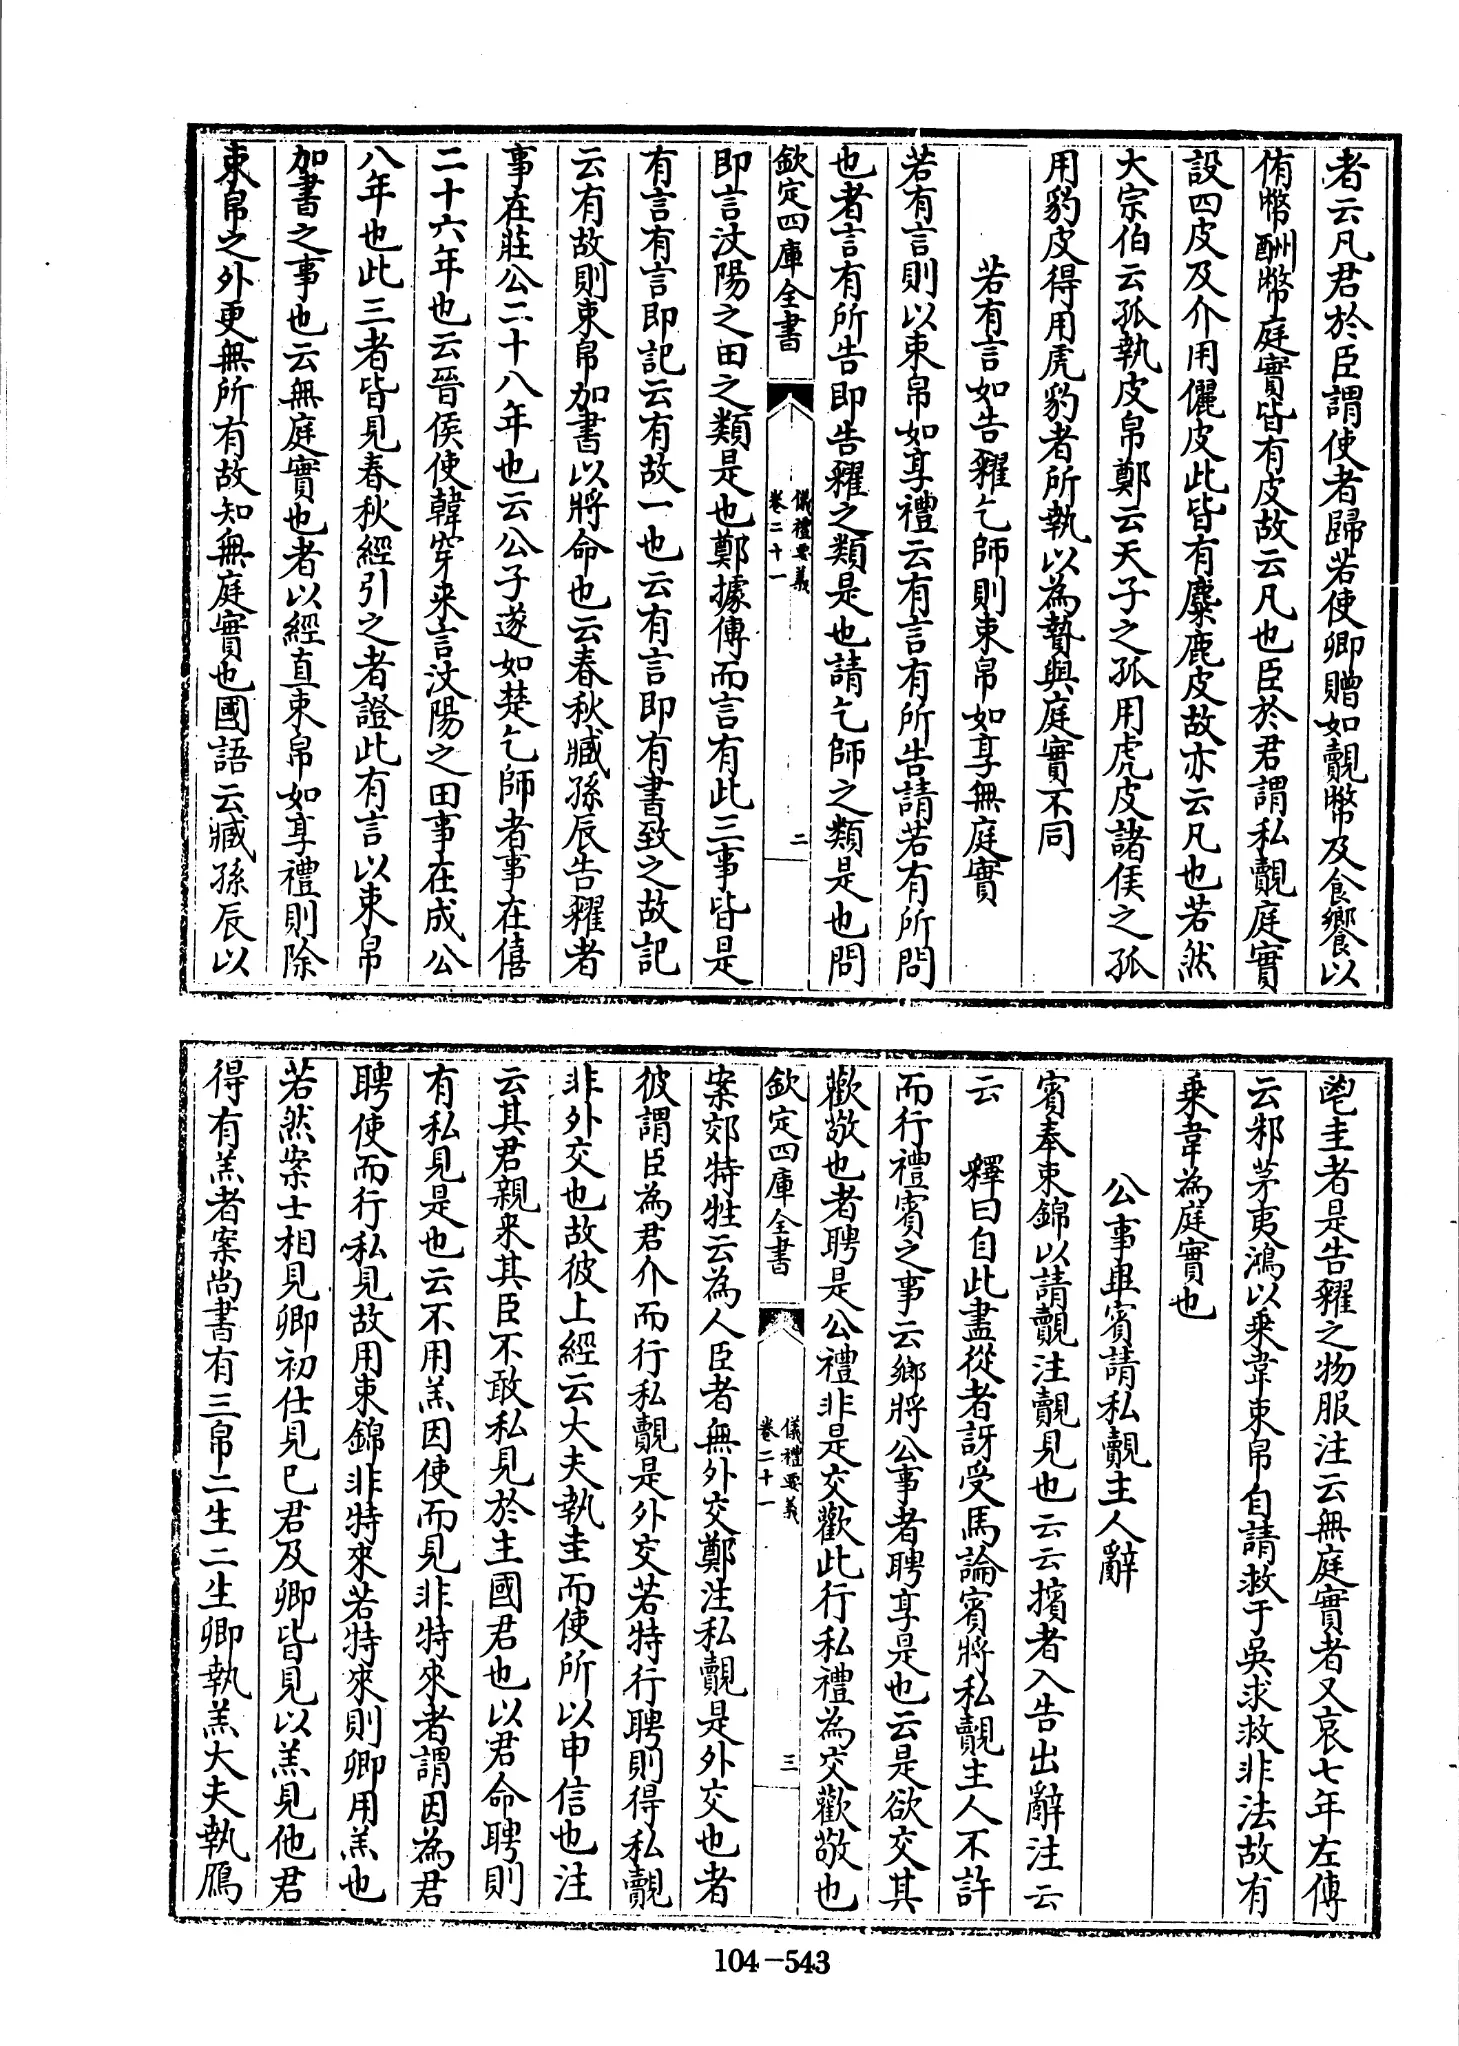 者云凡君於臣謂使者歸若使卿贈如覿幣及食饗以
侑幣酬幣庭實皆有皮故云凡也臣於君謂私覿庭實
設四皮及介用儷皮此皆有麋鹿皮故亦云凡也若然
大宗伯云孤執皮帛鄭云天子之孤用虎皮諸侯之孤
用豹皮得用虎豹者所執以為贄與庭實不同
若有言如告糴乞師則束帛如享無庭實
若有言則以束帛如享禮云有言有所告請若有所問
也者言有所告即告糴之類是也請乞師之類是也問
欽定四庫全書
儀禮要義
卷二十一
二
即言汶陽之田之類是也鄭據傳而言有此三事皆是
有言有言即記云有故一也云有言即有書致之故記
云有故則束帛加書以將命也云春秋臧孫辰告糴者
事在莊公二十八年也云公子遂如楚乞師者事在僖
二十六年也云晉侯使韓穿來言汶陽之田事在成公
八年也此三者皆見春秋經引之者證此有言以束帛
加書之事也云無庭實也者以經直束帛如享禮則除
束帛之外更無所有故知無庭實也國語云臧孫辰以
鬯圭者是告糴之物服注云無庭實者又哀七年左傳
云邾茅夷鴻以乘韋束帛自請救于吳求救非法故有
乘韋為庭實也
公事畢賓請私覿主人辭
賓奉束錦以請覿注覿見也云云擯者入告出辭注云
云 釋曰自此盡從者訝受馬論賓將私覿主人不許
而行禮賓之事云鄉將公事者聘享是也云是欲交其
歡敬也者聘是公禮非是交歡此行私禮為交歡敬也
欽定四庫全書
儀禮要義
卷二十一
三
案郊特牲云為人臣者無外交鄭注私覿是外交也者
彼謂臣為君介而行私覿是外交若特行聘則得私覿
非外交也故彼上經云大夫執圭而使所以申信也注
云其君親來其臣不敢私見於主國君也以君命聘則
有私見是也云不用羔因使而見非特來者謂因為君
聘使而行私見故用束錦非特來若特來則卿用羔也
若然案士相見卿初仕見己君及卿皆見以羔見他君
得有羔者案尚書有三帛二生二生卿執羔大夫執鴈
104-543